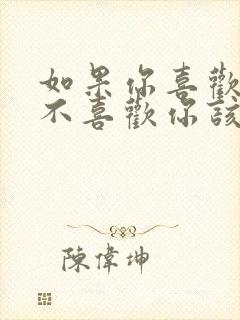 如果你喜歡
不喜歡你該
陳偉坤